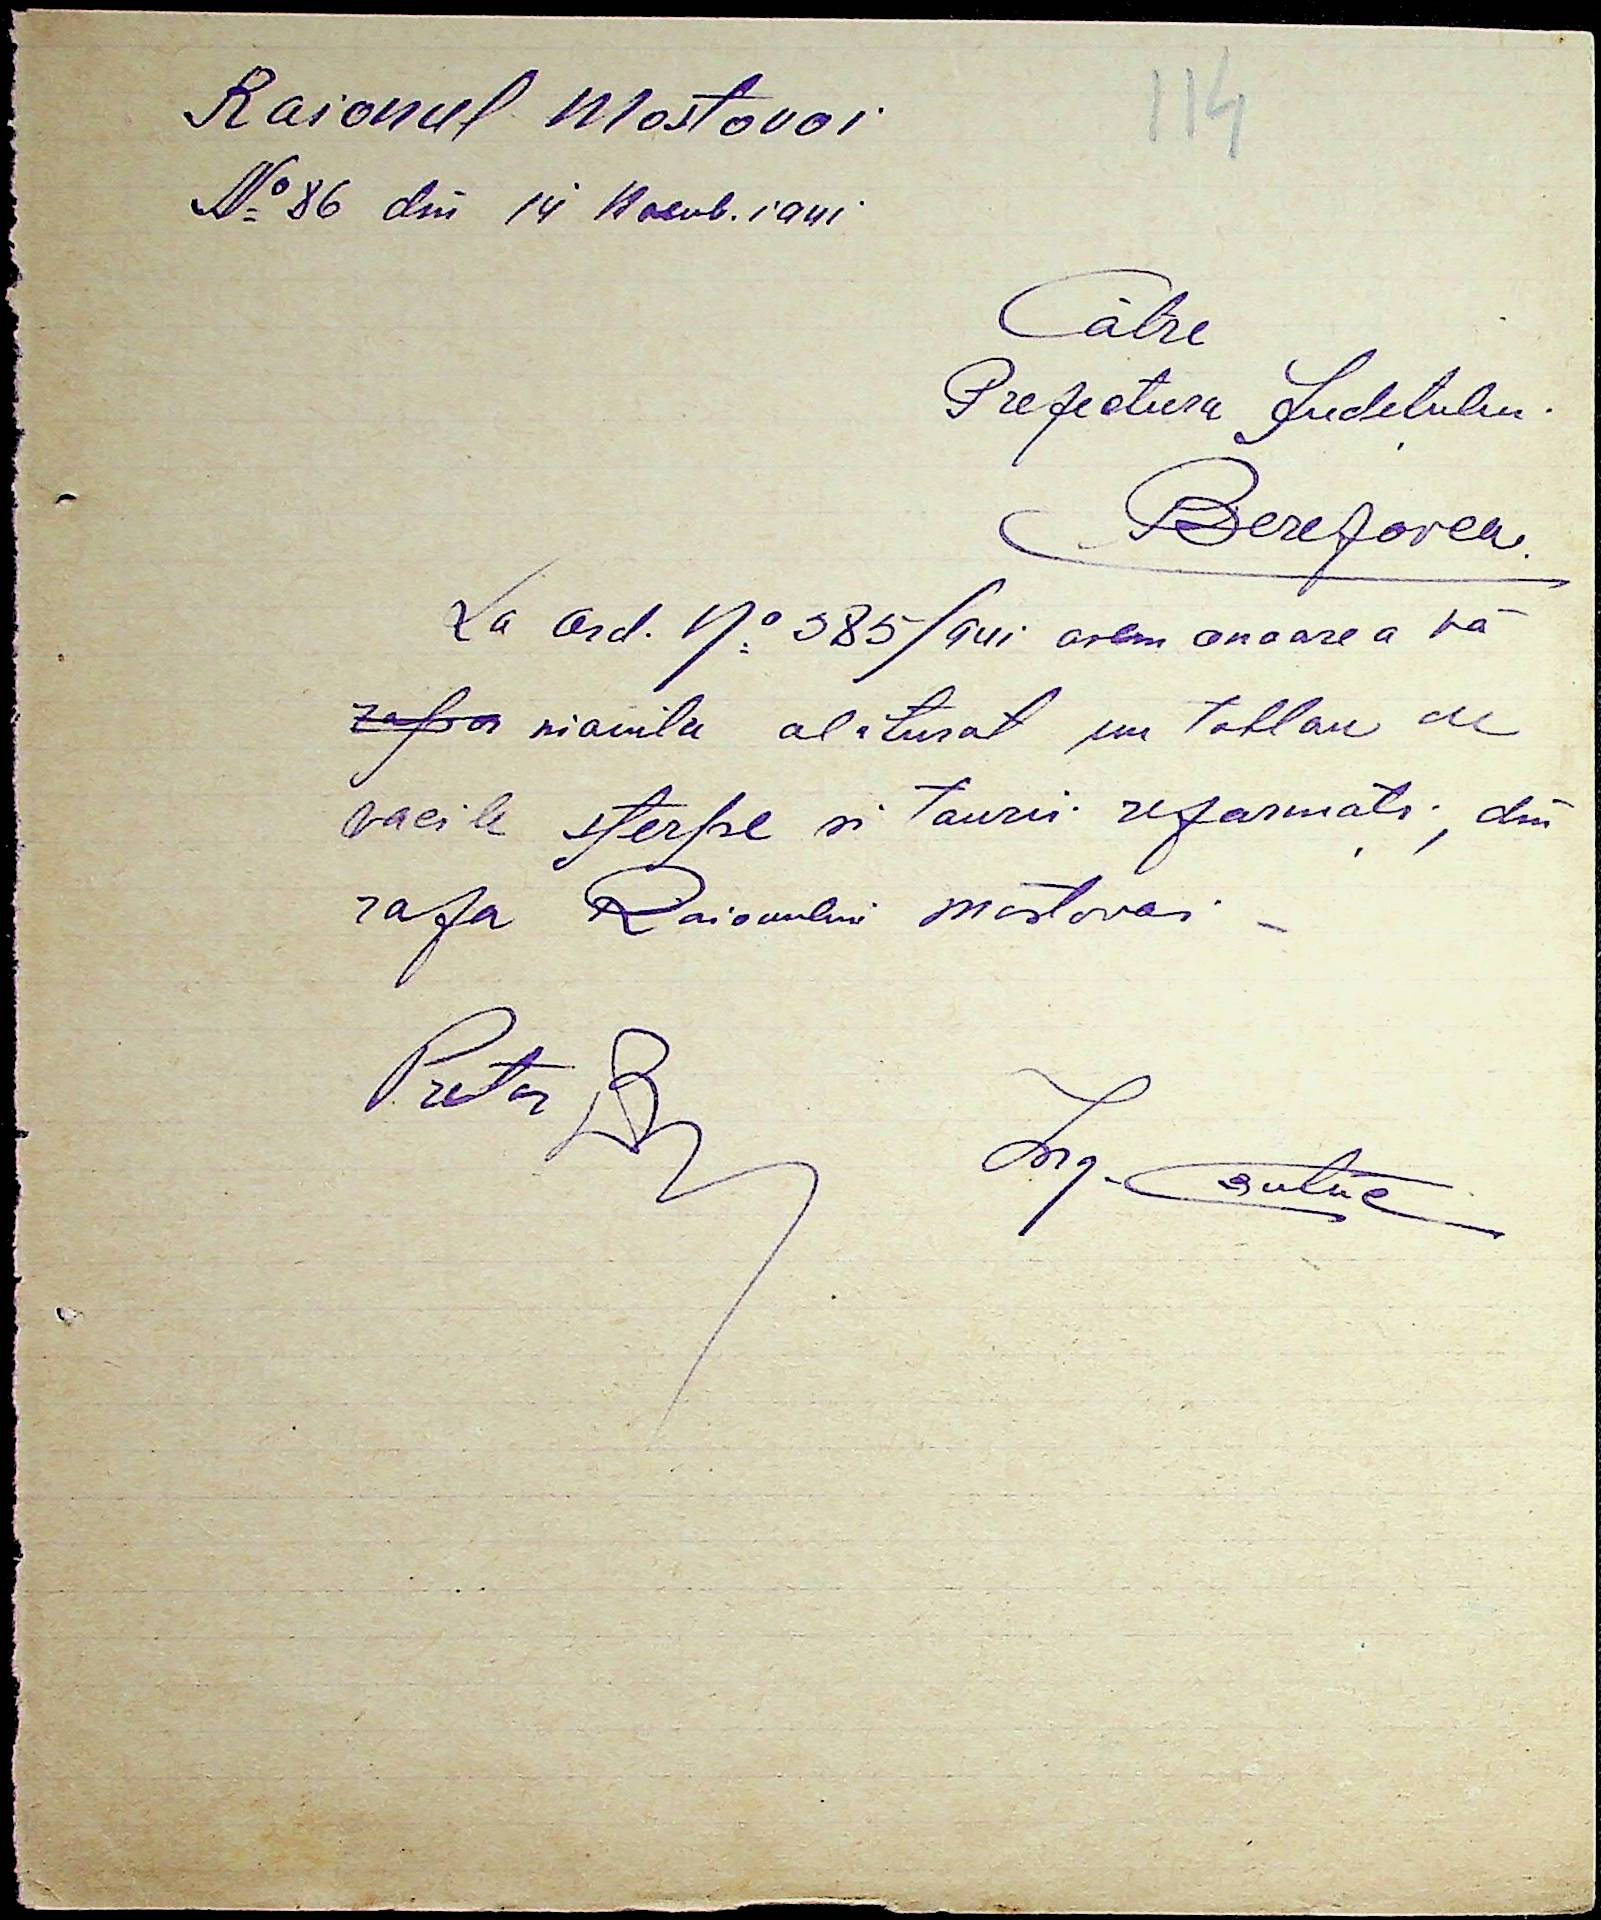 Raionul Mostovoi
114
Nº 86 din 14 Noemb. 1941
Către
Prefectura Județului
Berezovca
La Ord. Nº 385/941 avem onoarea vă
înainta alăturat un tablou de
vacile sterpe și taurii reformați, din
raza Raionului Mostovoi
Pretor
Ing.